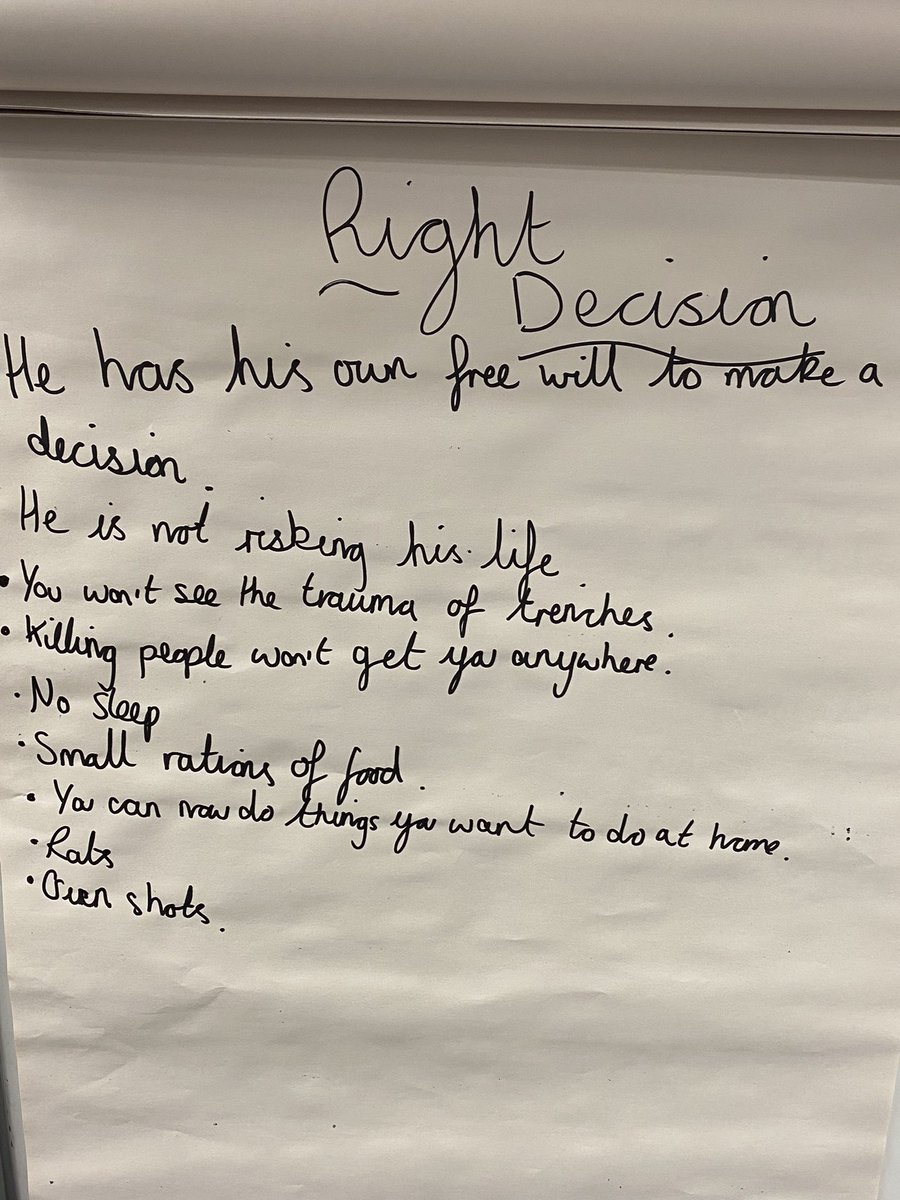 Right
Decision
He has his own free will to make a
decision.
He is not risking his life
• You won't see the trauma of trenches.
• Killing people won't get you anywhere.
• No sleep
• Small rations of food.
• You can now do things you want to do at home.
• Rats
• shots.